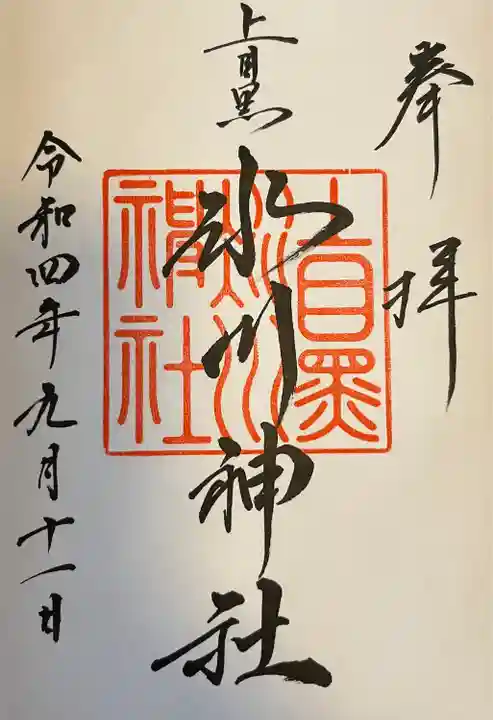 奉拝
上目黒
氷川神社
上目黒氷川神社
令和四年九月十一日